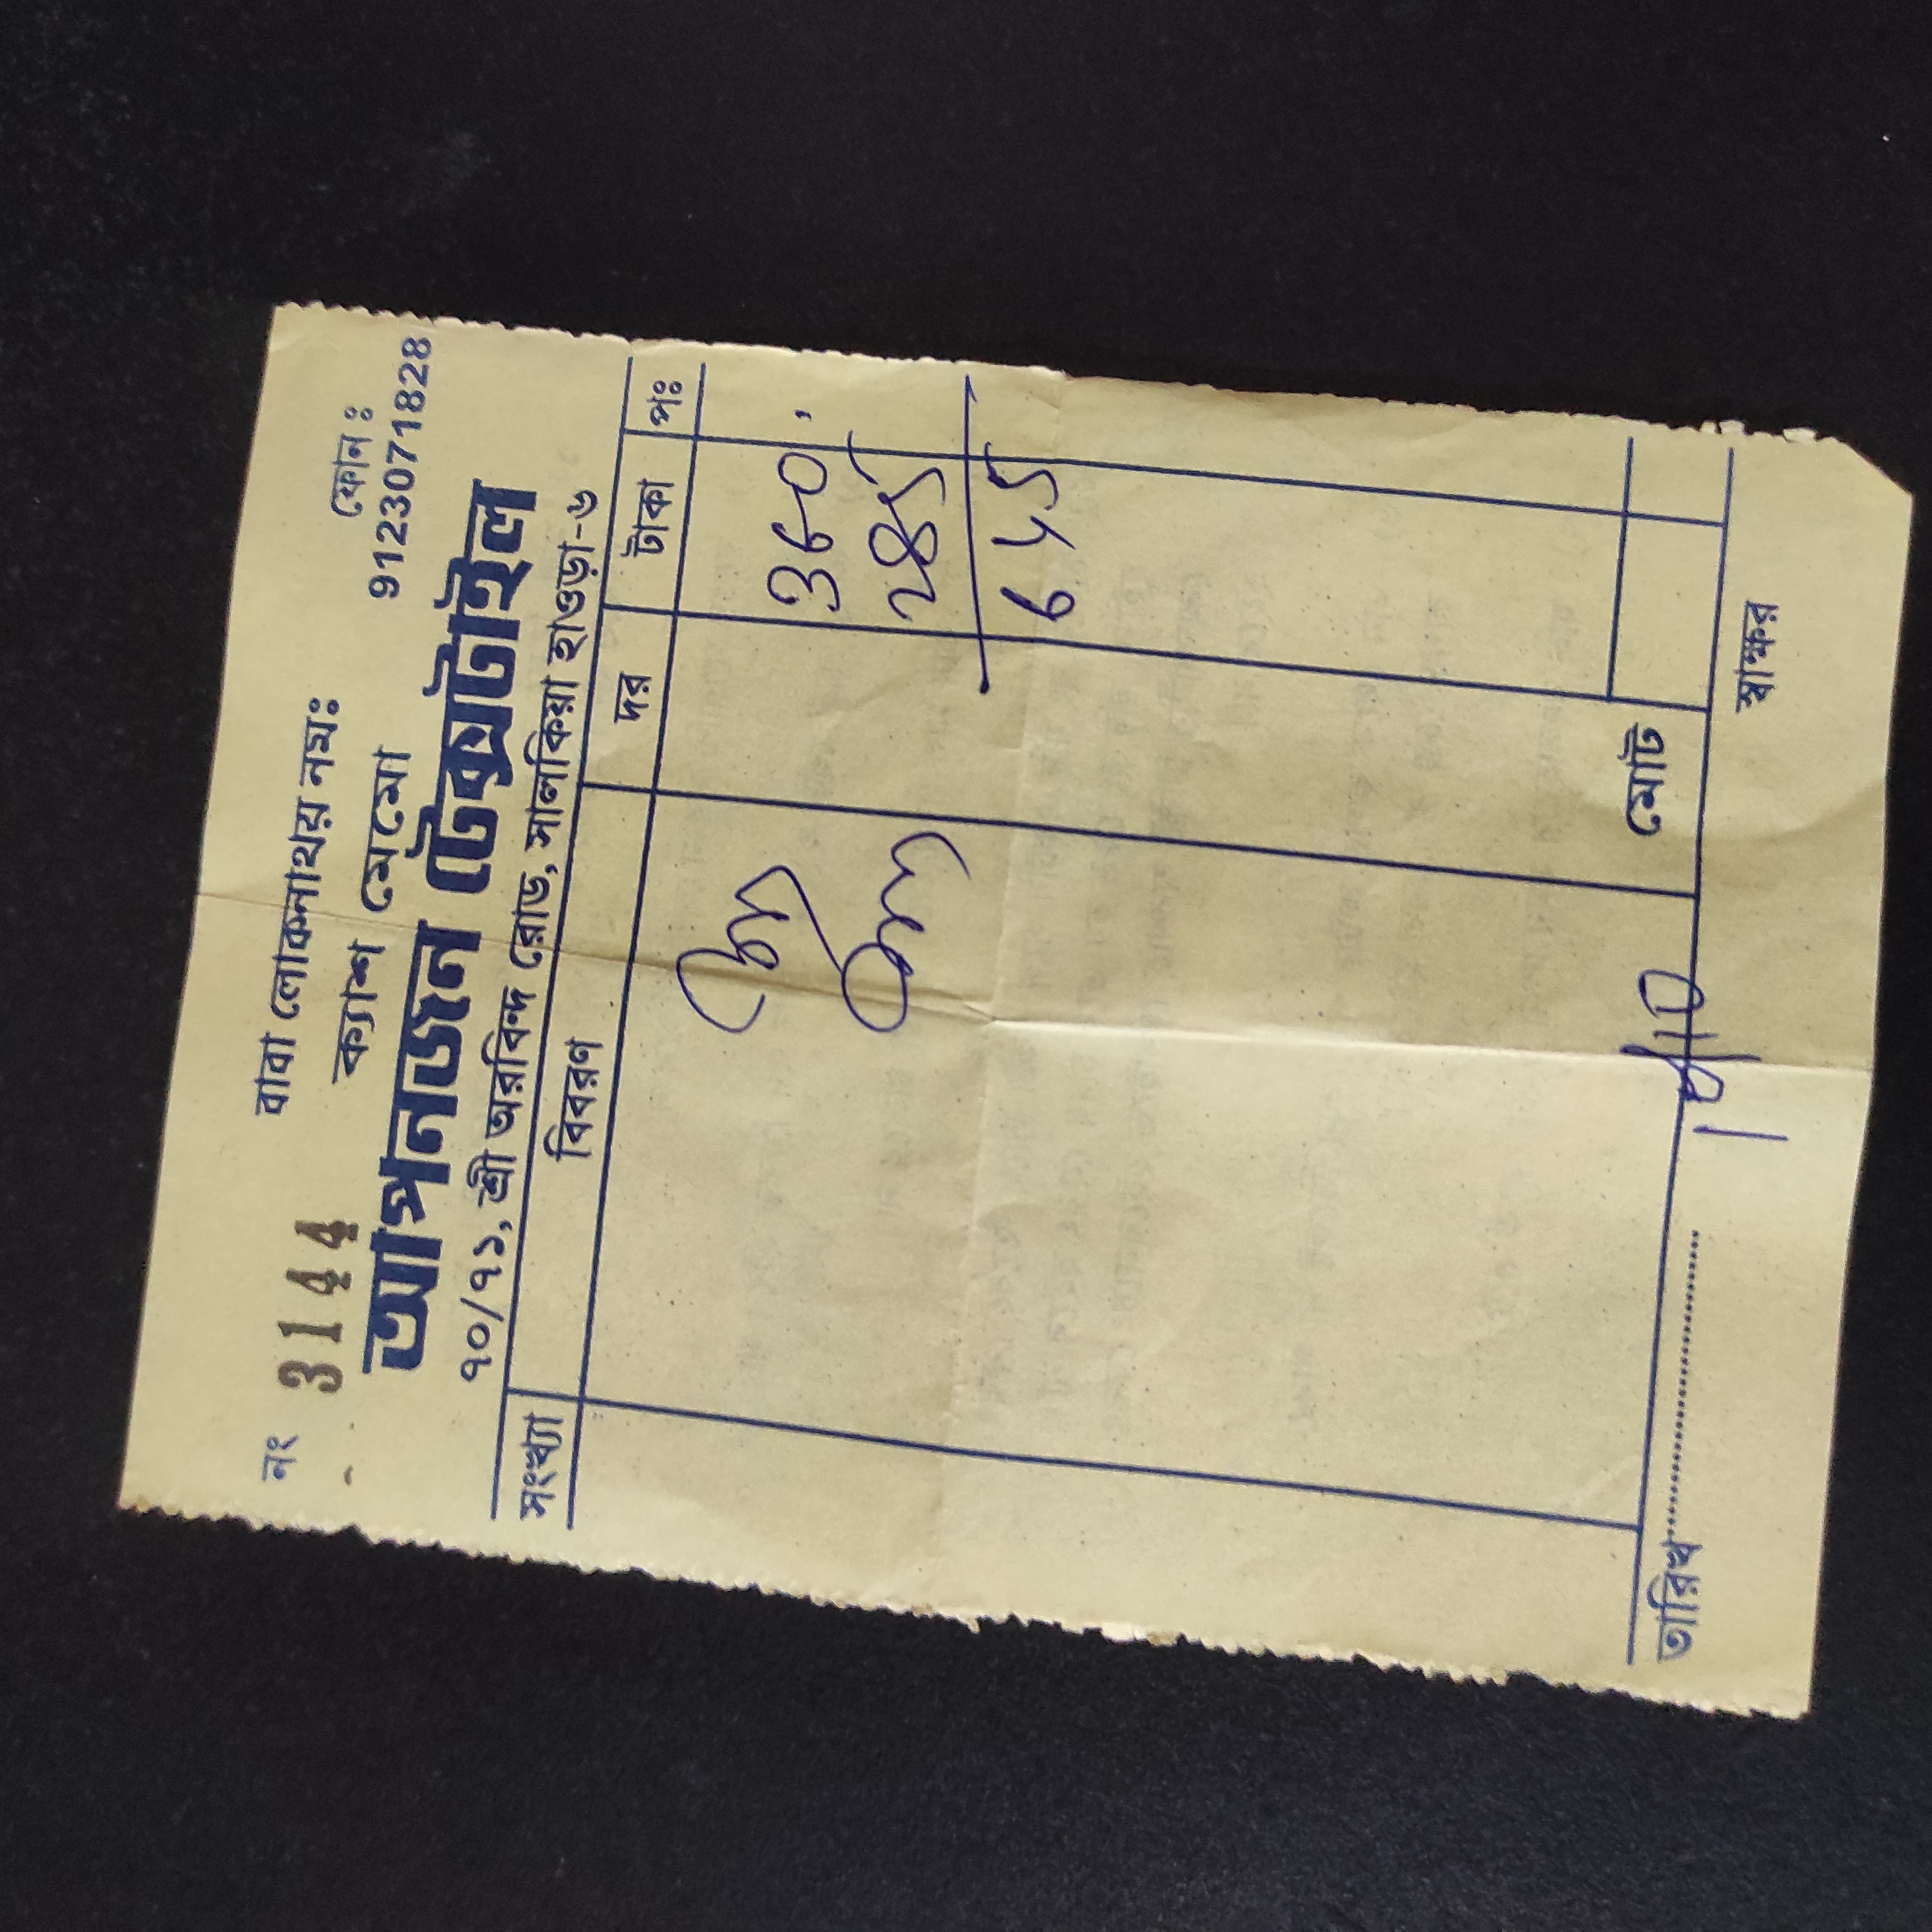 নং 3144
বাবা লোকনাথয় নমঃ
ক্যাশ মেমো
ফোন :
9123071828
আপনজন টেক্সটাইল
৭০/৭১, শ্রী অরবিন্দ রোড, সালকিয়া হাওড়া-৬
সংখ্যা বিবরণ দর টাকা পঃ
360
285
645
মোট
তারিখ
স্বাক্ষর